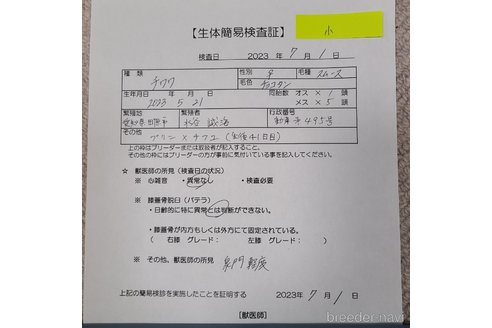 【生体簡易検査証】
小
検査日 2023年 7月 1日
種類 チワワ 性別 ♀ 毛種 スムース
毛色 チョコタン
生年月日 年 月 日 同胎数 オス × 1 頭
2023 5 21 メス × 5 頭
繁殖地 繁殖者 行政番号
愛知県田原市 誠浩 第495号
その他 プリン × チフユ (生後41日目)
上の枠はブリーダーまたは取扱者が記入すること。
その他の枠にはブリーダーの方が事前に気付いている事を記入してください。
☆ 獣医師の所見(検査日の状況)
※ 心雑音 ・異常なし ・検査必要
※ 膝蓋骨脱臼(パテラ)
・日齢的に特に異常とは判断ができない。
・膝蓋骨が内方もしくは外方にて固定されている。
( 右膝 グレード: 左膝 グレード: )
※ その他、獣医師の所見 泉門 軽度
上記の簡易検診を実施したことを証明する 2023年 7月 1日
【獣医師】
breeder-navi